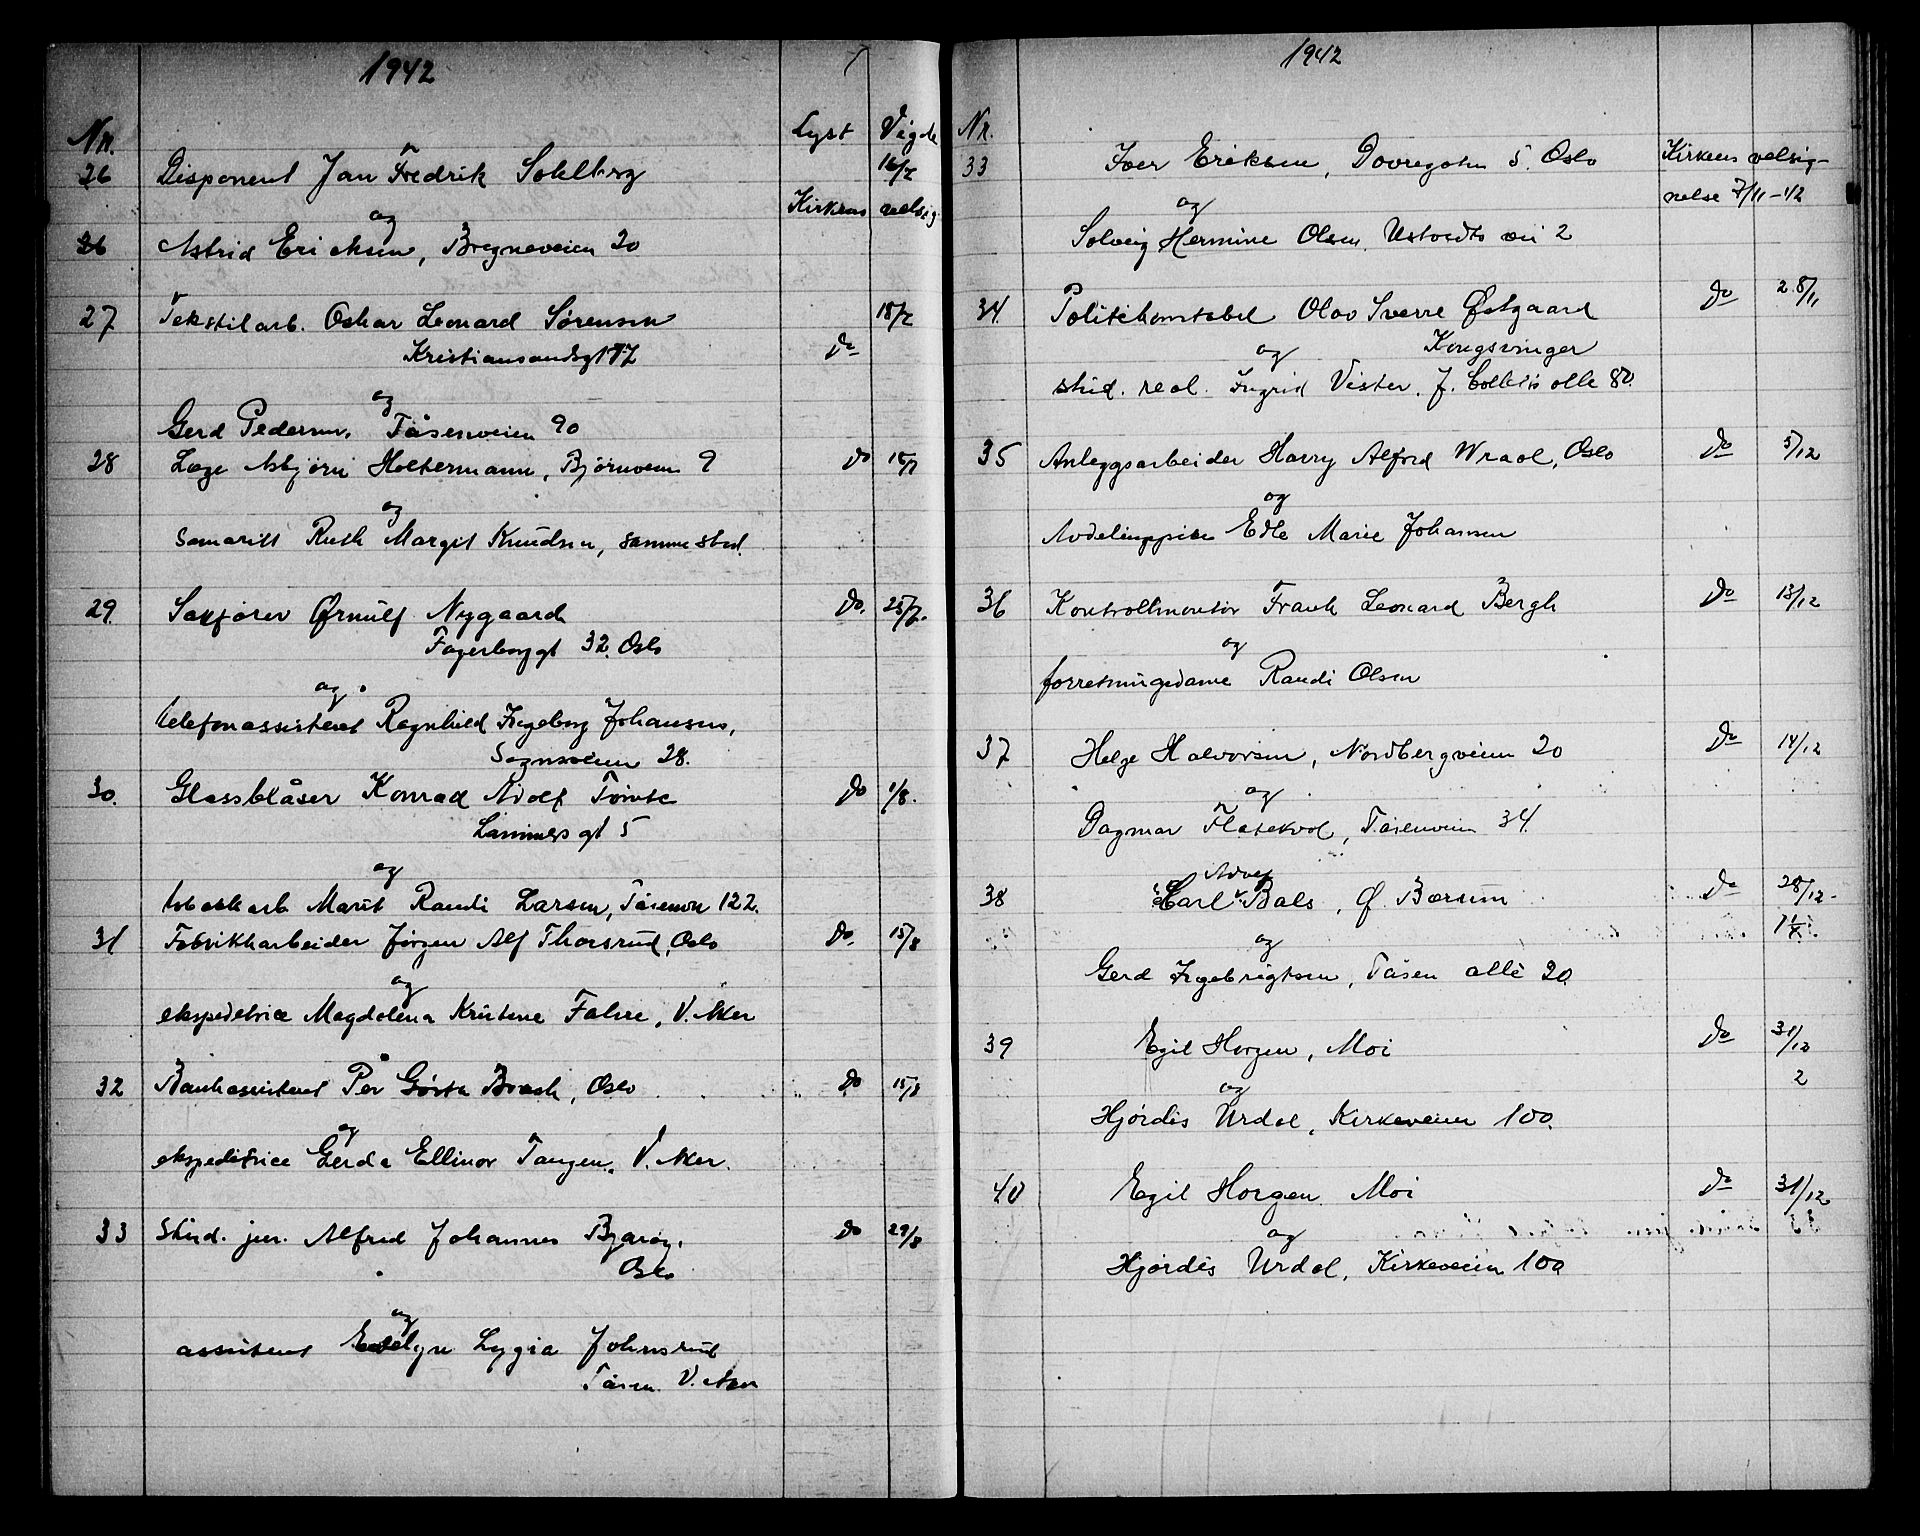 1942
Nr. Lyst Vigde
26 Disponent Jan Fredrik Sohlberg 16/7
og Kirkens velsig.
26 Astrid Ericksen, Bregneveien 20
27 Tekstilarb. Oskar Leonard Sørensen 18/7
Kristiansandsgt 17 do
og
Gerd Pedersen, Tåsenveien 90
28 Læge Asbjørn Holtermann, Bjørnveien 9 do 18/7
og
Samaritt Ruth Margit Knudsen, samme sted.
29. Sakfører Ørnulf Nygaard do. 25/7.
Fagerborggt 32. Oslo
og
telefonassistent Ragnhild Ingeborg Johansen,
Sognsveien 28.
30. Glassblåser Konrad Adolf Tømte do 1/8.
Lammers gt 5
og
Marit Randi Larsen, Tåsenvn 122.
31 Fabrikkarbeider Jørgen Alf Thorsrud, Oslo do. 15/8
og
ekspeditrice Magdalena Kristine Falsre, V. Aker
32 Bankassistent Per Gösta Brask, Oslo do 15/8
og
ekspeditrice Gerda Ellinor Tangen, V. Aker.
33 Stud. jur. Alfred Johannes Bjarøy, do 29/8
Oslo
og
assistent Evelyn Lygia Johnsrud
Tåsen. V. Aker
1942
Nr.
33 Iver Eriksen, Dovregaten 5. Oslo Kirkens velsig-
og nelse 7/11-42
Solveig Hermine Olsen, Ustvedts vei 2
34. Politikonstabel Olav Sverre Østgaard do 28/11
og Kongsvinger
stud. real. Ingrid Vister, J. Colletts alle 80.
35 Anleggsarbeider Harry Alfred Wraal, Oslo do 5/12
og
Edle Marie Johansen
36 Kontrollmontør Frank Leonard Bergh do 13/12
og
forretningsdame Randi Olsen
37 Helge Halvorsen, Nordbergveien 20 do 14/12
og
Dagmar Flatekvol, Tåsenveien 34.
Adolf
38 Carl Bals, Ø. Bærum do 28/12.
og
Gerd Ingebrigtsen, Tåsen allè 20
39 Egil Horgen, Moi do 31/12
og 2
Hjördis Urdal, Kirkeveien 100.
40 Egil Horgen Moi do 31/12
og
Hjørdis Urdal, Kirkeveien 100